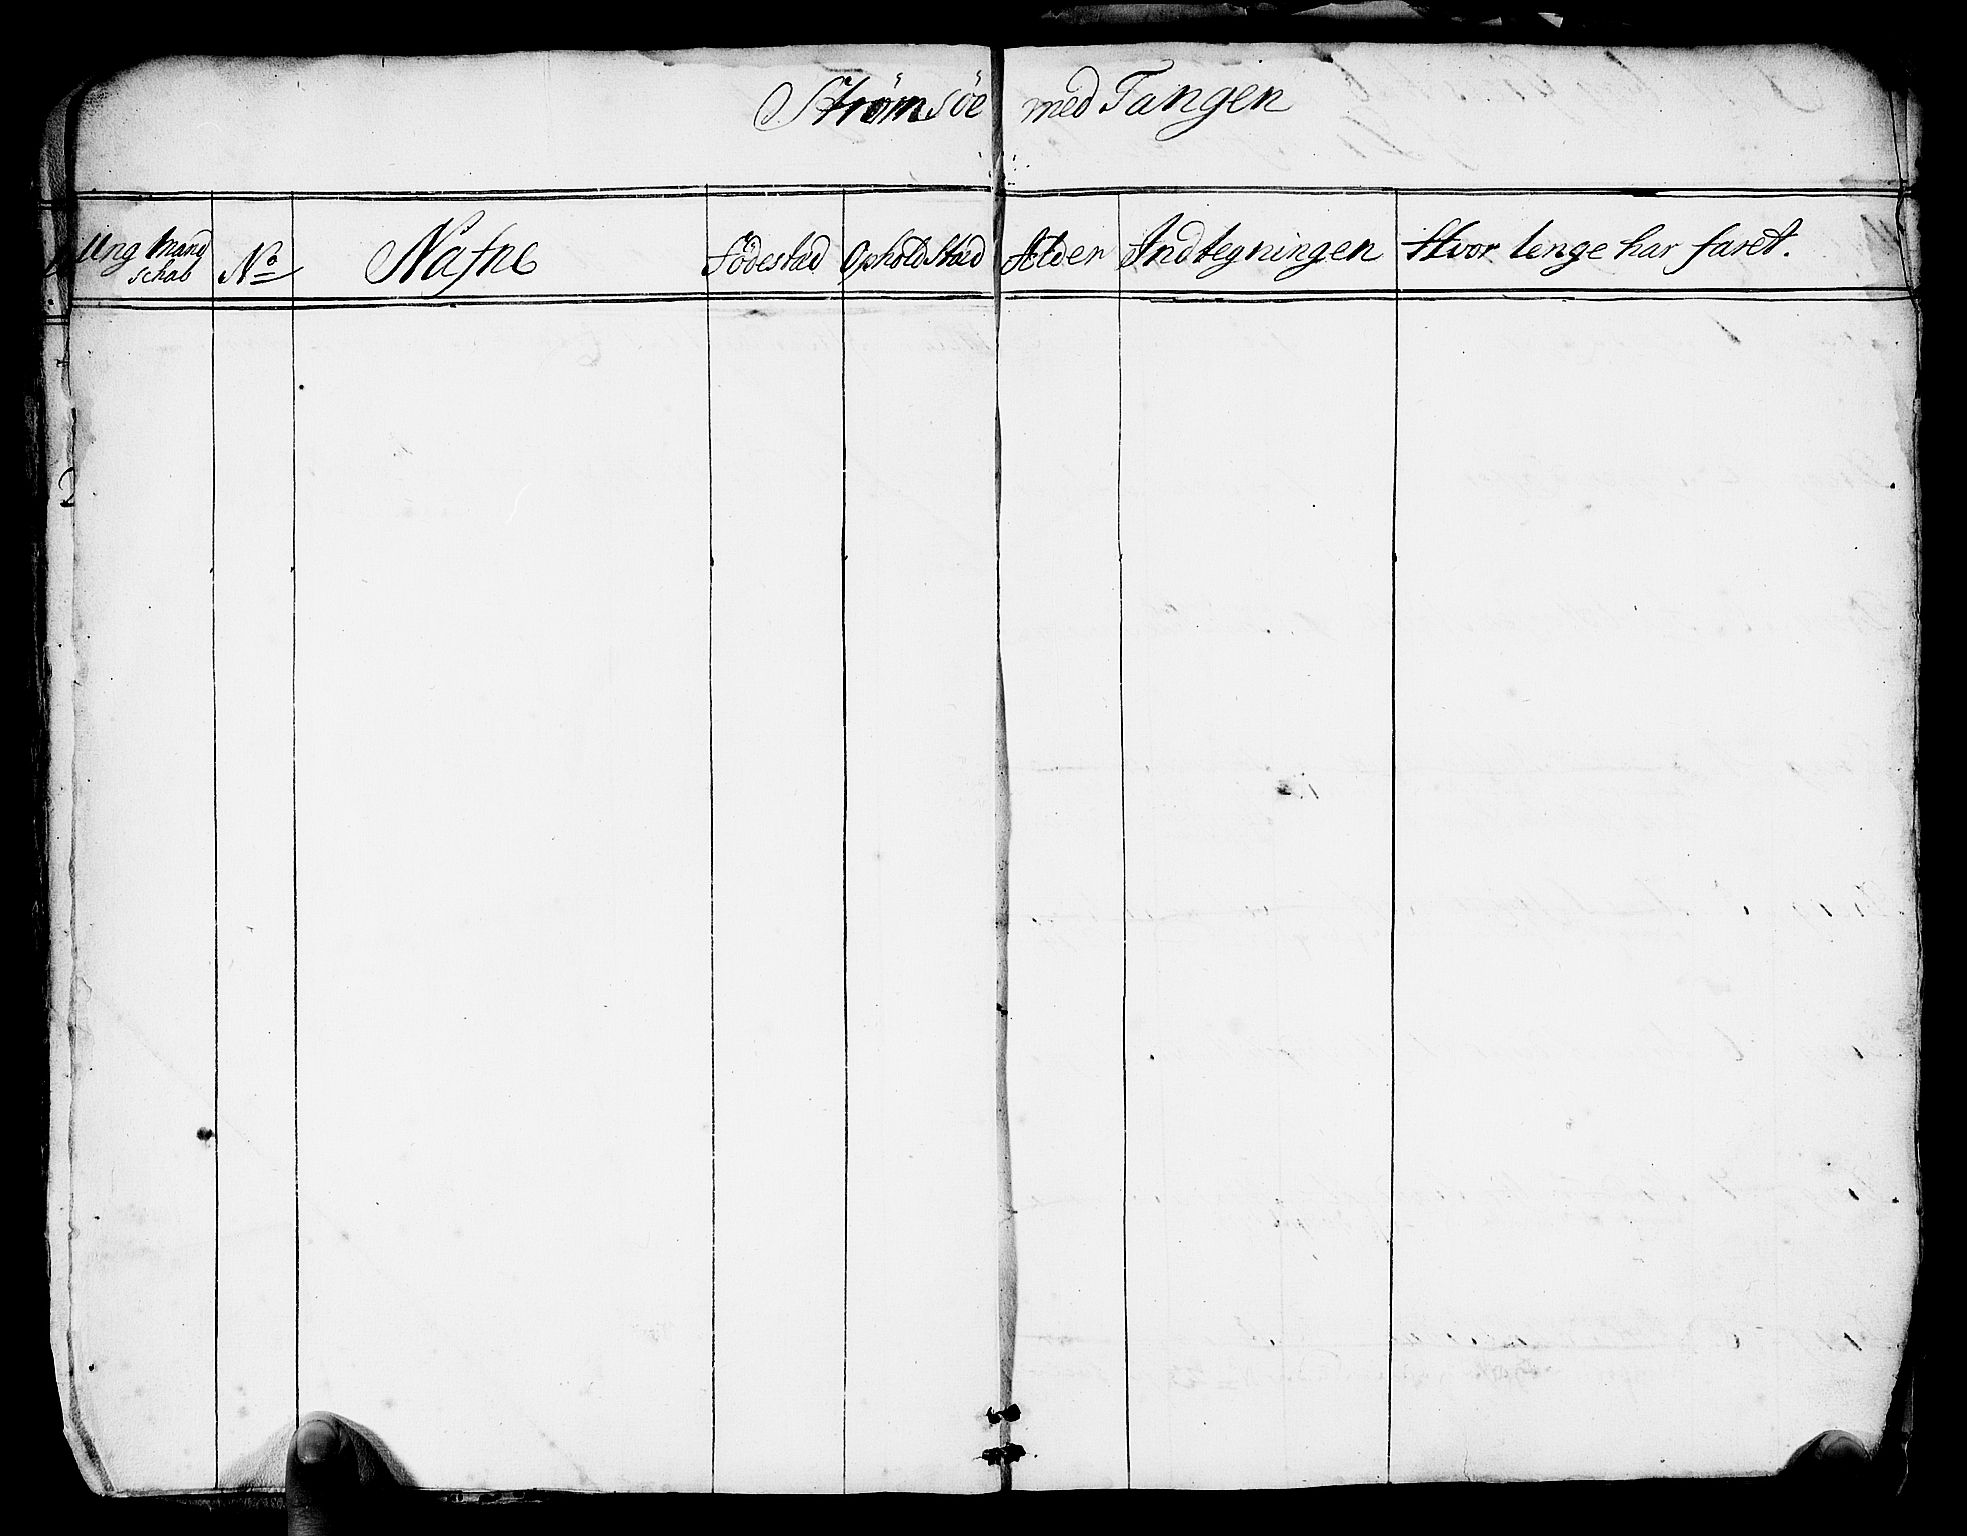 Strømsöe med Tangen
Ung Mand
schab
No
Nafne
Födestad
Ophold Stæd
Alder
Indtegningen
Hvor lenge har faret.